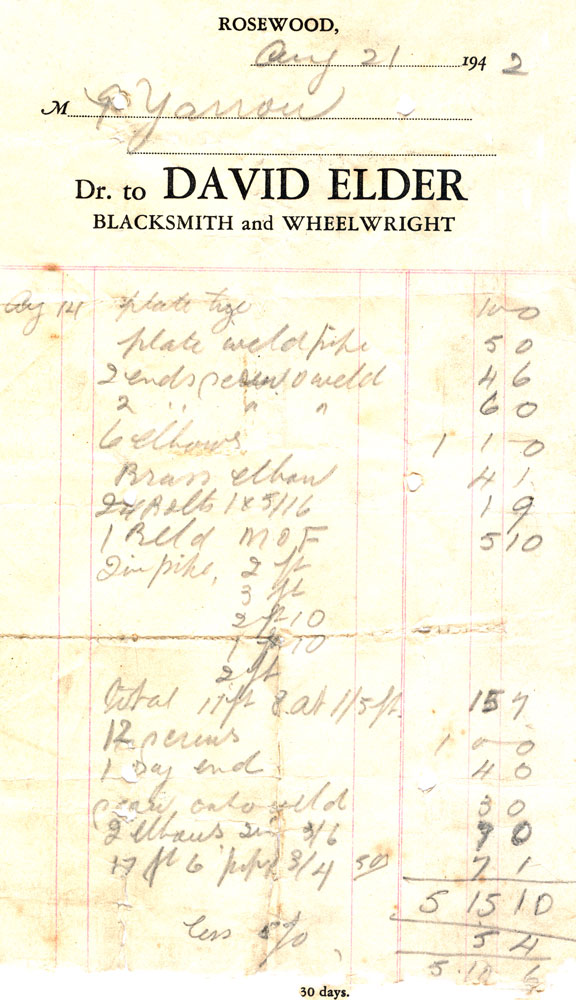 ROSEWOOD,
Aug 21 1942
M Yarrow
Dr. to DAVID ELDER
BLACKSMITH and WHEELWRIGHT
Aug 14 plate 10 0
plate weld pipe 5 0
2 ends screw & weld 4 6
2 " " " 6 0
6 elbows 1 1 0
Brass elbow 4 1
24 Bolts 1 x 5/16 1 9
1 M & F 5 10
2 in pipe, 2 ft
3 ft
2 ft 10
1 ft 10
2 ft
total 11 ft 8 at 1/5 ft. 15 7
12 screws 1 0 0
1 end 4 0
weld 3 0
2 elbows 2in 3/6 7 0
17 ft 6 pipe 3/4 5d 7 1
5 15 10
less 5% 5 4
5 10 6
30 days.